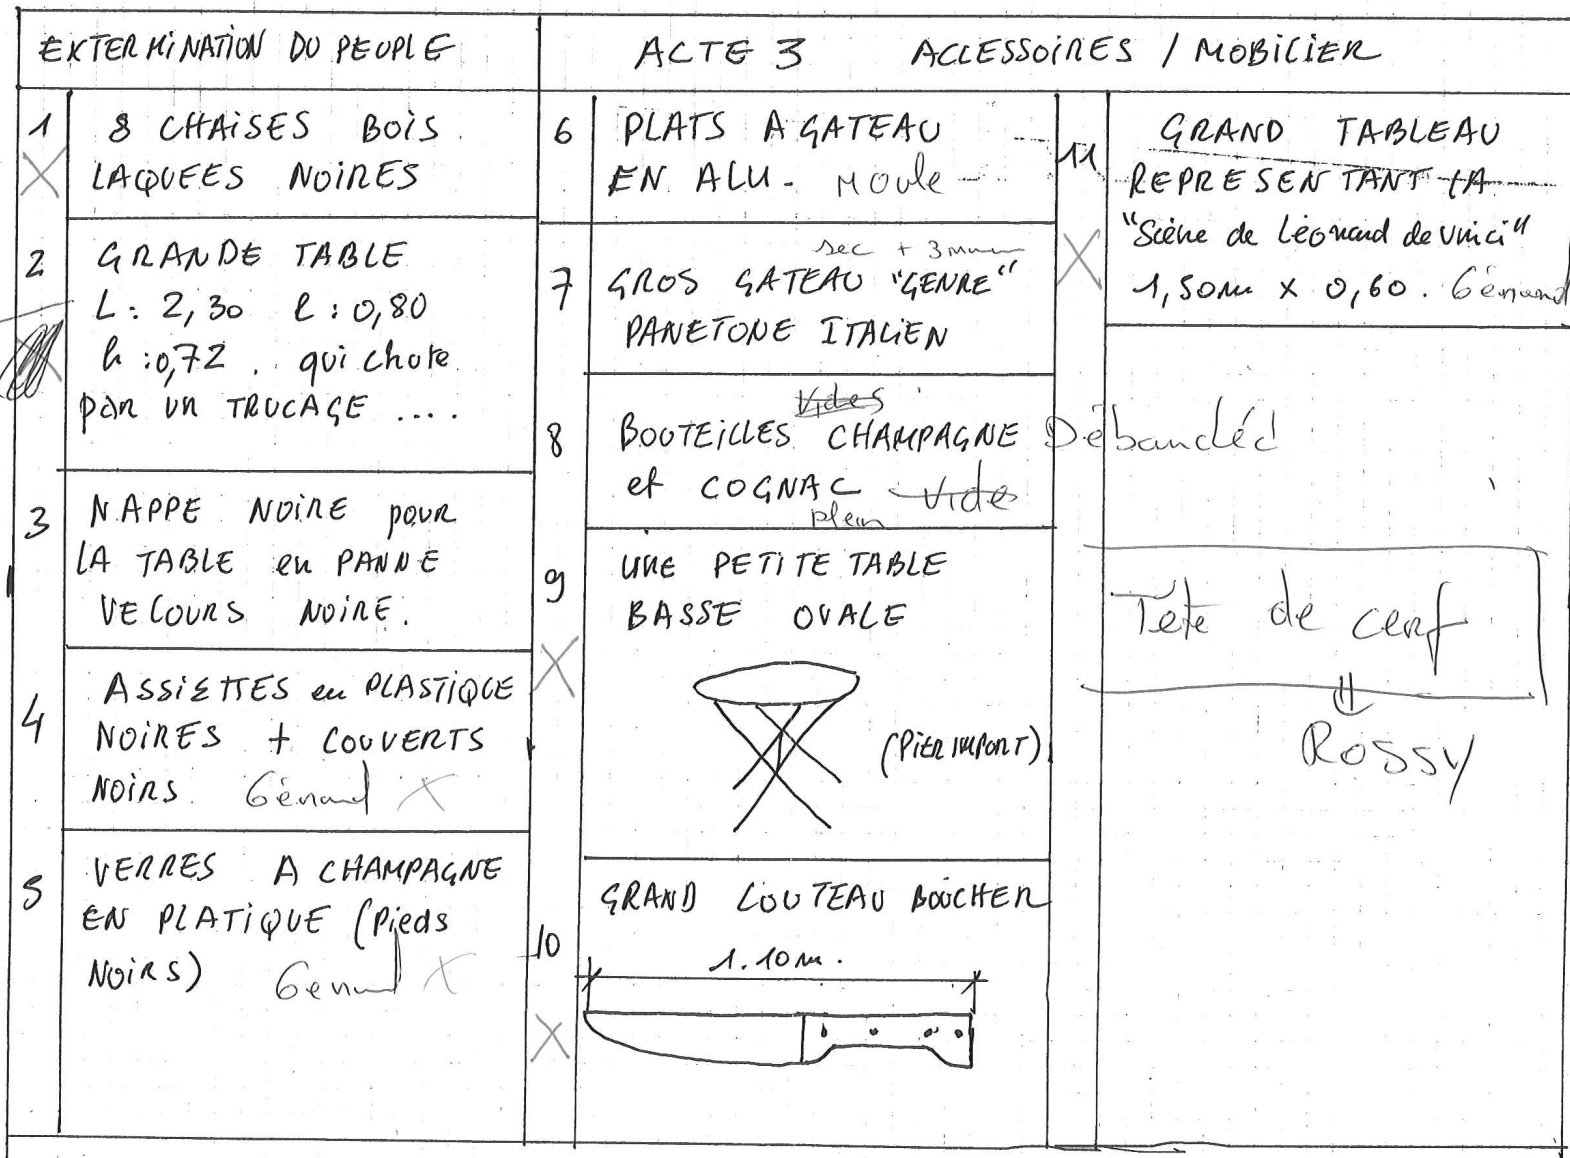 EXTERMINATION DU PEUPLE
ACTE 3 ACCESSOIRES / MOBILIER
1 8 CHAISES BOIS
LAQUEES NOIRES
2 GRANDE TABLE
L: 2,30 l: 0,80
h: 0,72. qui chute
par un TRUCAGE ....
3 NAPPE NOIRE pour
LA TABLE en PANNE
VELOURS NOIRE.
4 ASSIETTES en PLASTIQUE
NOIRES + COUVERTS
NOIRS. Gérard X
5 VERRES A CHAMPAGNE
EN PLATIQUE (Pieds
NOIRS) Gérard X
6 PLATS A GATEAU
EN ALU. Moule
sec + 3
7 GROS GATEAU "GENRE"
PANETONE ITALIEN
Vides
8 BOUTEILLES CHAMPAGNE
et COGNAC vide
plein
9 UNE PETITE TABLE
BASSE OVALE
(PIER IMPORT)
10 GRAND COUTEAU BOUCHER
1.10m.
11 GRAND TABLEAU
REPRESENTANT LA
"Scène de Léonard de Vinci"
1,50m x 0,60. Gérard
Tête de cerf
Rossy